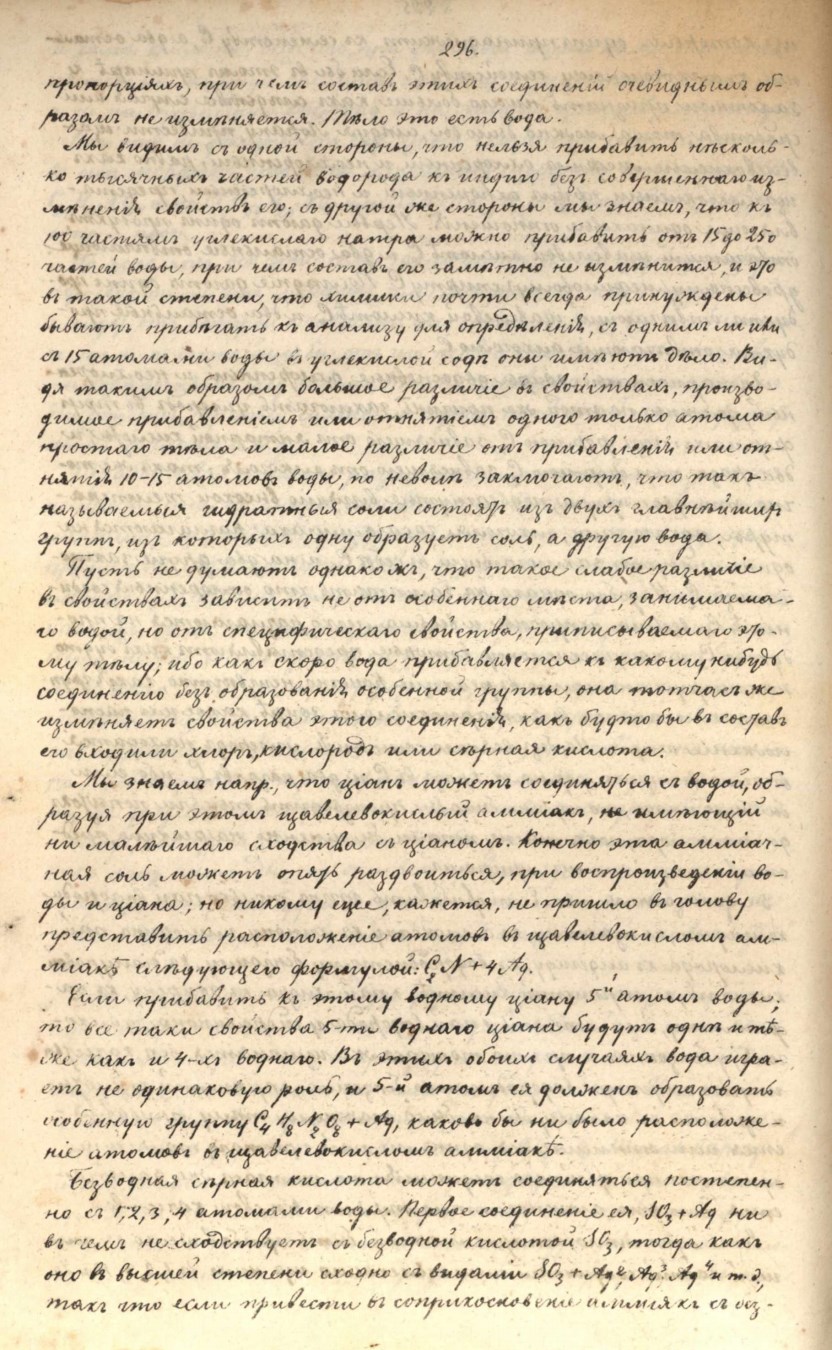 296.
пропорціяхъ, при чемъ составъ этихъ соединеній очевиднымъ об-
разомъ не измѣняется. Тѣло это есть вода.
Мы видимъ съ одной стороны, что нельзя прибавить нѣсколь-
ко тысячныхъ частей водорода къ индиго безъ совершеннаго из-
мѣненія свойствъ его; съ другой же стороны мы знаемъ, что къ
100 частямъ углекислаго натра можно прибавить отъ 15 до 250
частей воды, при чемъ составъ его замѣтно не измѣнится, и это
въ такой степени, что химики почти всегда принуждены
бываютъ прибѣгать къ анализу для опредѣленія, съ однимъ ли или
съ 15 атомами воды въ углекислой содѣ они имѣютъ дѣло. Ви-
дя такимъ образомъ большое различіе въ свойствахъ, произво-
димое прибавленіемъ или отнятіемъ одного только атома
простаго тѣла и малое различіе отъ прибавленія или от-
нятія 10-15 атомовъ воды, по неволѣ заключаютъ, что такъ
называемыя гидратныя соли состоятъ изъ двухъ главнѣйшихъ
группъ, изъ которыхъ одну образуетъ соль, а другую вода.
Пусть не думаютъ однакожъ, что такое слабое различіе
въ свойствахъ зависитъ не отъ особеннаго мѣста, занимаема-
го водой, но отъ специфическаго свойства, приписываемаго это-
му тѣлу; ибо какъ скоро вода прибавляется къ какому нибудь
соединенію безъ образованія особенной группы, она тотчасъ же
измѣняетъ свойства этого соединенія, какъ будто бы въ составъ
его входили хлоръ, кислородъ или сѣрная кислота.
Мы знаемъ напр., что ціанъ можетъ соединяться съ водой, об-
разуя при этомъ щавелевокислый амміакъ, не имѣющій
ни малѣйшаго сходства съ ціаномъ. Конечно эта амміач-
ная соль можетъ опять раздвоиться, при воспроизведеніи во-
ды и ціана; но никому еще, кажется, не пришло въ голову
представить расположеніе атомовъ въ щавелевокисломъ ам-
міакѣ слѣдующего формулой: C₂N + 4 Aq.
Если прибавить къ этому водному ціану 5й атомъ воды,
то все таки свойства 5-ти воднаго ціана будутъ однѣ и тѣ-
же какъ и 4-хъ воднаго. Въ этихъ обоихъ случаяхъ вода игра-
етъ не одинаковую роль, и 5-й атомъ ея долженъ образовать
особенную группу C₄ H₈ N₂ O₈ + Aq, каково бы ни было расположе-
ніе атомовъ въ щавелевокисломъ амміакѣ.
Безводная сѣрная кислота можетъ соединяться постепен-
но съ 1, 2, 3, 4 атомами воды. Первое соединеніе ея, SO₃ + Aq ни
въ чемъ не сходствуетъ съ безводной кислотой SO₃, тогда какъ
оно въ высшей степени сходно съ видами SO₃ + Aq², Aq³, Aq⁴ и т. д.,
такъ что если привести въ соприкосновеніе амміакъ съ без-